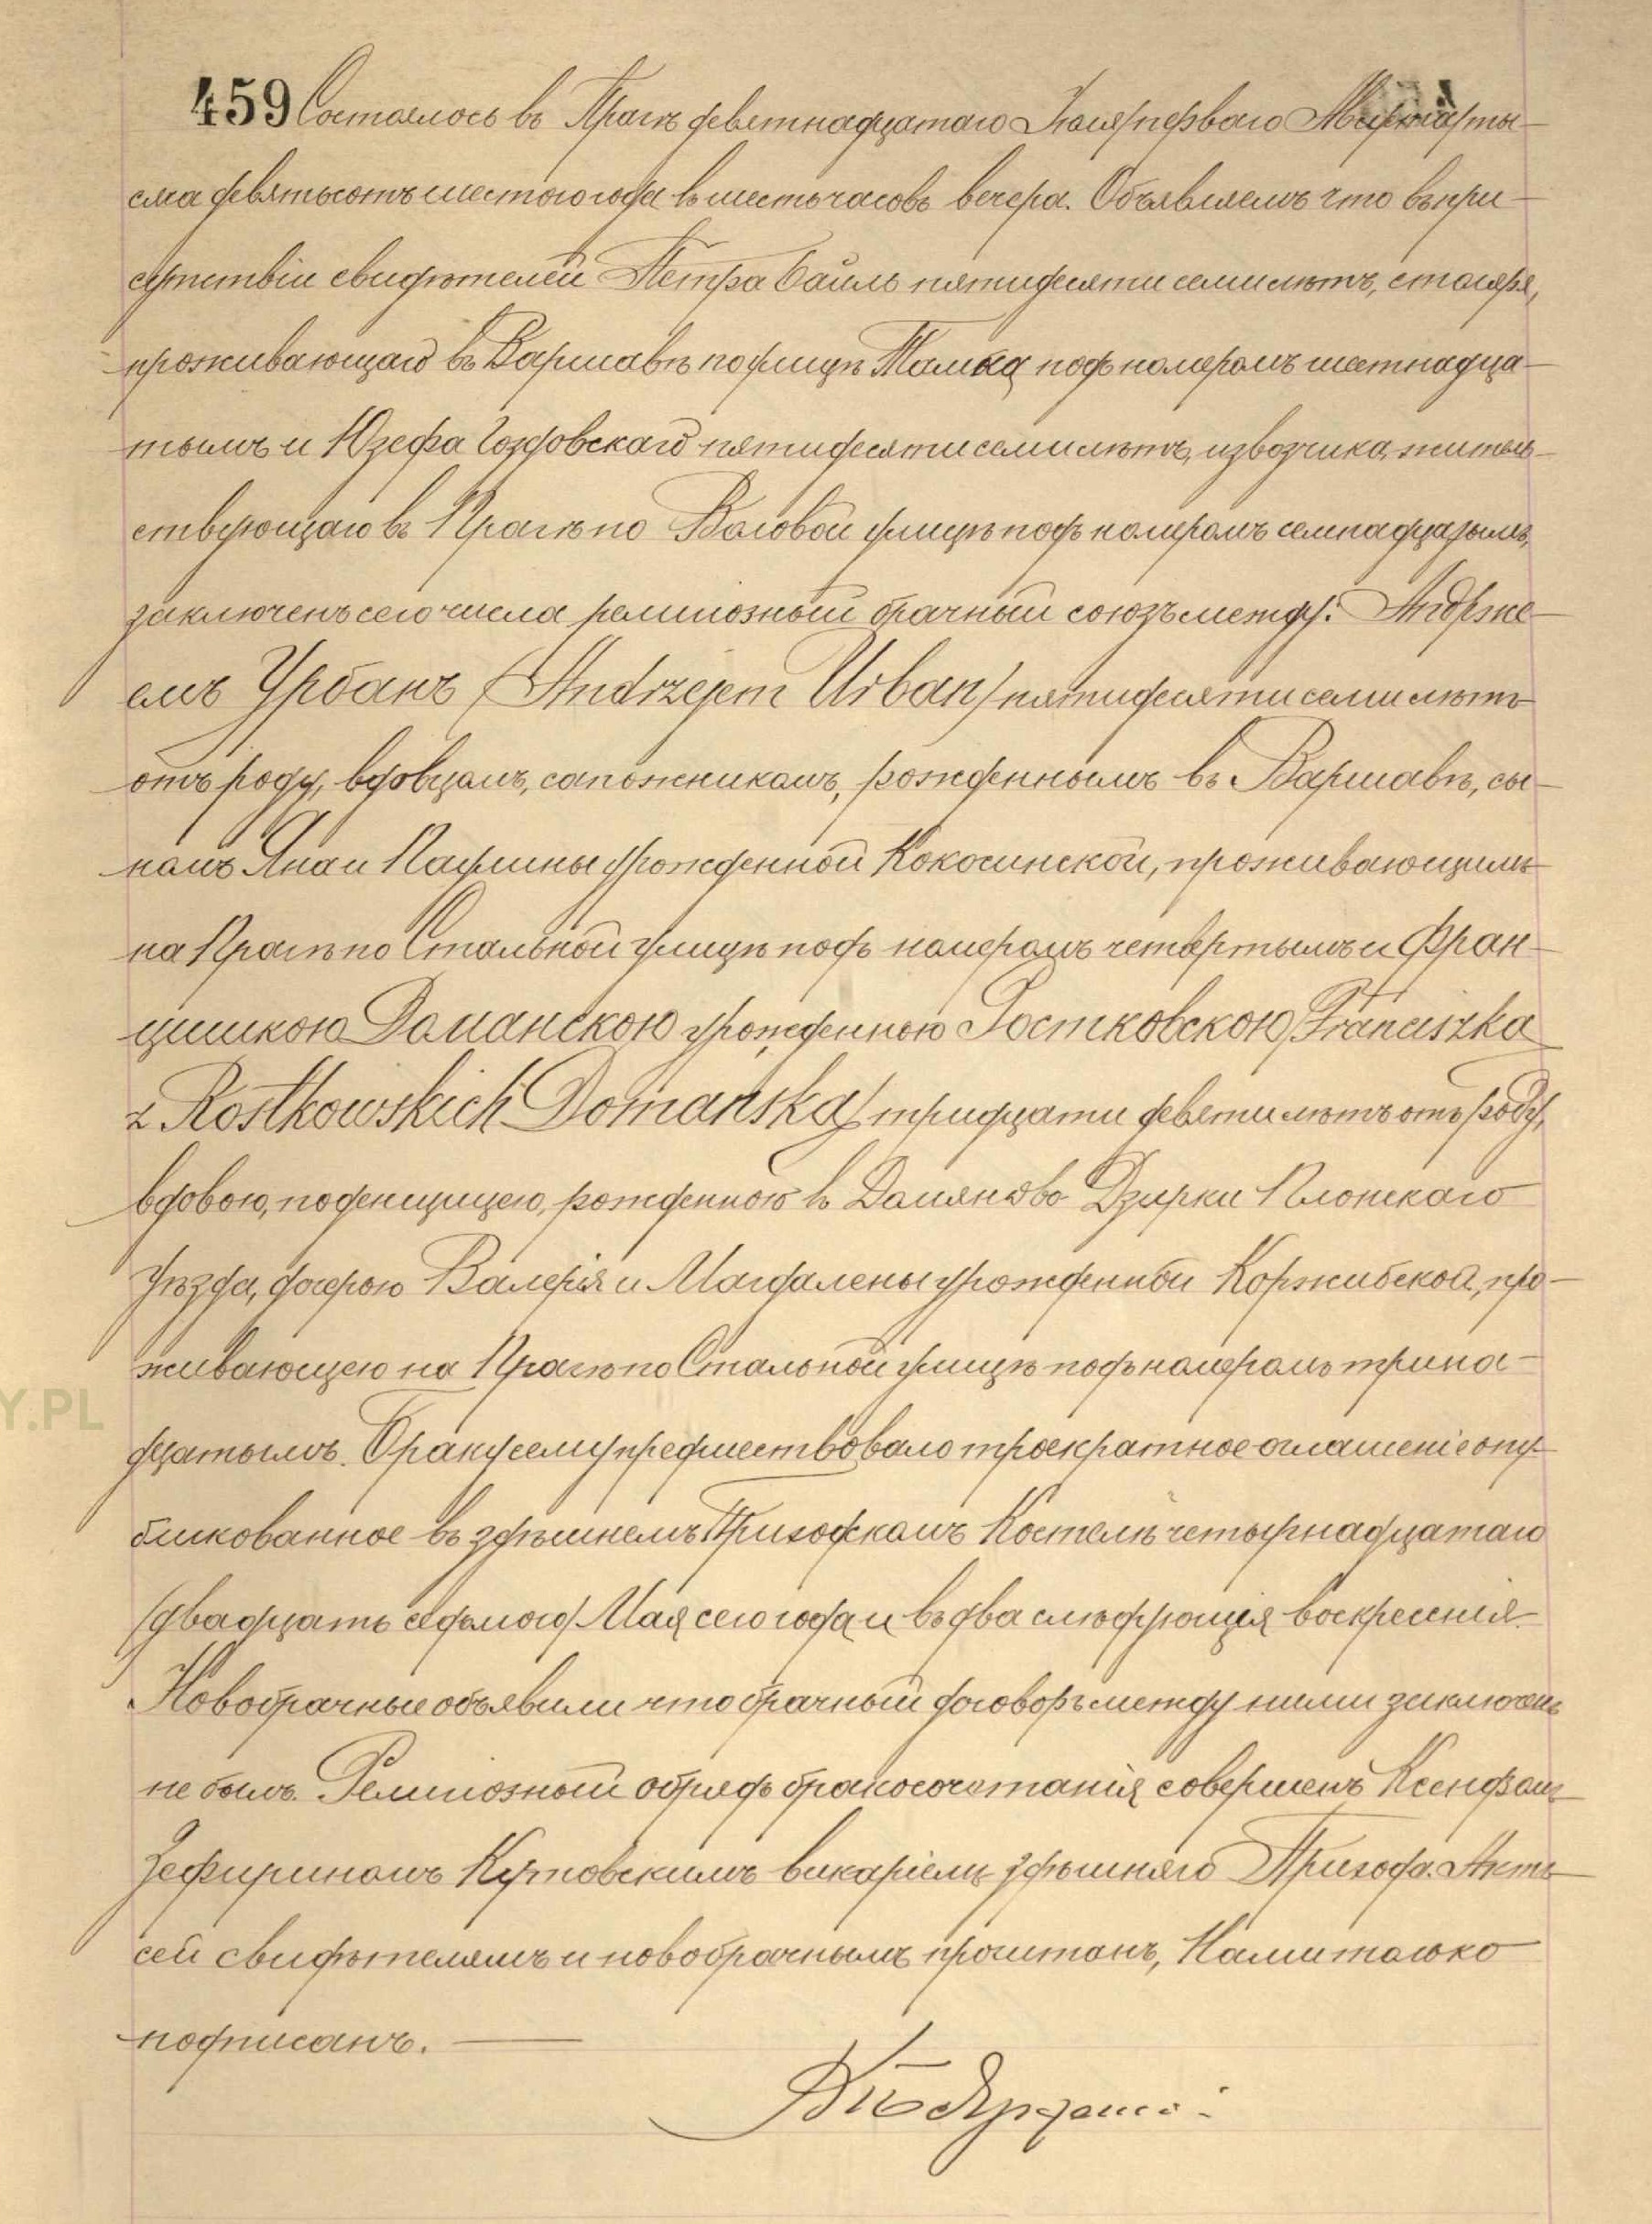 459 Состоялось въ Праге девятнадцатаго Іюня/перваго
сяча девятьсотъ шестого года въ шесть часовъ вечера. Объявляемъ что въ при-
сутствіи свидѣтелей Петра Байль пятидесяти семи лѣтъ, столяра,
проживающаго въ Варшавѣ по улицѣ Тамка подъ номеромъ шестнадца-
тымъ и Юзефа пятидесяти семи лѣтъ, извозчика, житель-
ствующаго въ Прагѣ по Воловой улицѣ подъ номеромъ семнадцатымъ,
заключенъ сего числа религіозный брачный союзъ между: Андрже-
емъ Урбанъ /Andrzejem Urban/ пятидесяти семи лѣтъ
отъ роду, вдовцомъ, сапожникомъ, рожденнымъ въ Варшавѣ, сы-
номъ Яна и Паулины урожденной Кокосинской, проживающимъ
на Прагѣ по Стальной улицѣ подъ номеромъ четвертымъ и Фран-
цишкою Доманскою урожденною Ростковскою /Franciszka
z Rostkowskich Domańska/ тридцати девяти лѣтъ отъ роду,
вдовою, поденщицею, рожденною въ Домяново Дзирки Плонскаго
Уѣзда, дочерью Валерія и Магдалены урожденной Коржибской, про-
живающею на Прагѣ по Стальной улицѣ подъ номеромъ трина-
дцатымъ. Браку сему предшествовало троекратное оглашеніе опу-
бликованное въ здѣшнемъ Приходскомъ Костелѣ четырнадцатаго
/двадцать седьмого/ Мая сего года и въ два слѣдующія воскресенія.
Новобрачные объявили что брачный договоръ между ними заключенъ
не былъ. Религіозный обрядъ бракосочетанія совершенъ Ксендзомъ
Зефириномъ Кутковскимъ викаріемъ здѣшняго Прихода. Актъ
сей свидѣтелямъ и новобрачнымъ прочитанъ, Нами только
подписанъ.